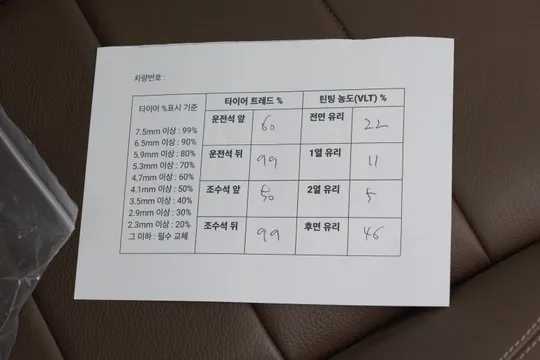 차량번호 :
타이어 %표시 기준
7.5mm 이상 : 99%
6.5mm 이상 : 90%
5.9mm 이상 : 80%
5.3mm 이상 : 70%
4.7mm 이상 : 60%
4.1mm 이상 : 50%
3.5mm 이상 : 40%
2.9mm 이상 : 30%
2.3mm 이상 : 20%
그 이하 : 필수 교체
타이어 트레드 % 틴팅 농도(VLT) %
운전석 앞 60 전면 유리 22
운전석 뒤 99 1열 유리 11
조수석 앞 50 2열 유리 5
조수석 뒤 99 후면 유리 46